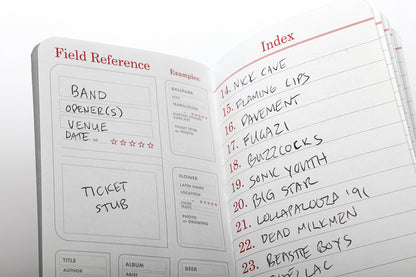 Field Reference
Examples:
BAND
OPENER(S)
VENUE
DATE
TICKET
STUB
TITLE
AUTHOR
ALBUM
ARTIST
BALLPARK
CITY
TEAMS/SCORE
TICKET STUB
or PHOTO
FLOWER
LATIN NAME
LOCATION
PHOTO or
DRAWING
BEER
Index
14. NICK CAVE
15. FLAMING LIPS
16. PAVEMENT
17. FUGAZI
18. BUZZCOCKS
19. SONIC YOUTH
20. BIG STAR
21. LOLLAPALOOZA '91
22. DEAD MILKMEN
23. BEASTIE BOYS